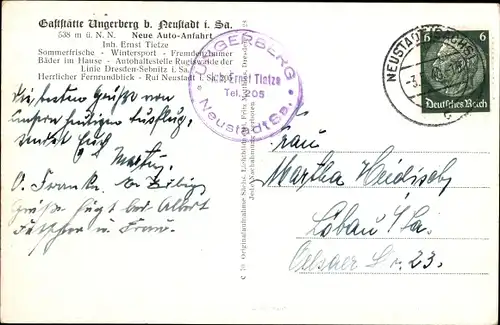 Gaststätte Ungerberg b. Neustadt i. Sa.
538 m ü. N.N. Neue Auto-Anfahrt
Inh. Ernst Tietze
Sommerfrische - Wintersport - Fremdenzimmer
Bäder im Hause - Autohaltestelle Rugiswalde der
Linie Dresden-Sebnitz i. Sa.
Herrlicher Fernrundblick - Ruf Neustadt i. Sa. 205
UNGERBERG
Ernst Tietze
Tel. 205
Neustadt Sa.
NEUSTADT (SACHS)
6 6
Deutsches Reich
Die besten Grüße von
unserm heutigen Ausflug,
sendet Euch
O. Franke
Grüße fügt bei Albert
u. Frau.
Frau
Martha Heidisch
Löbau i/Sa.
Oelsaer Str. 23.